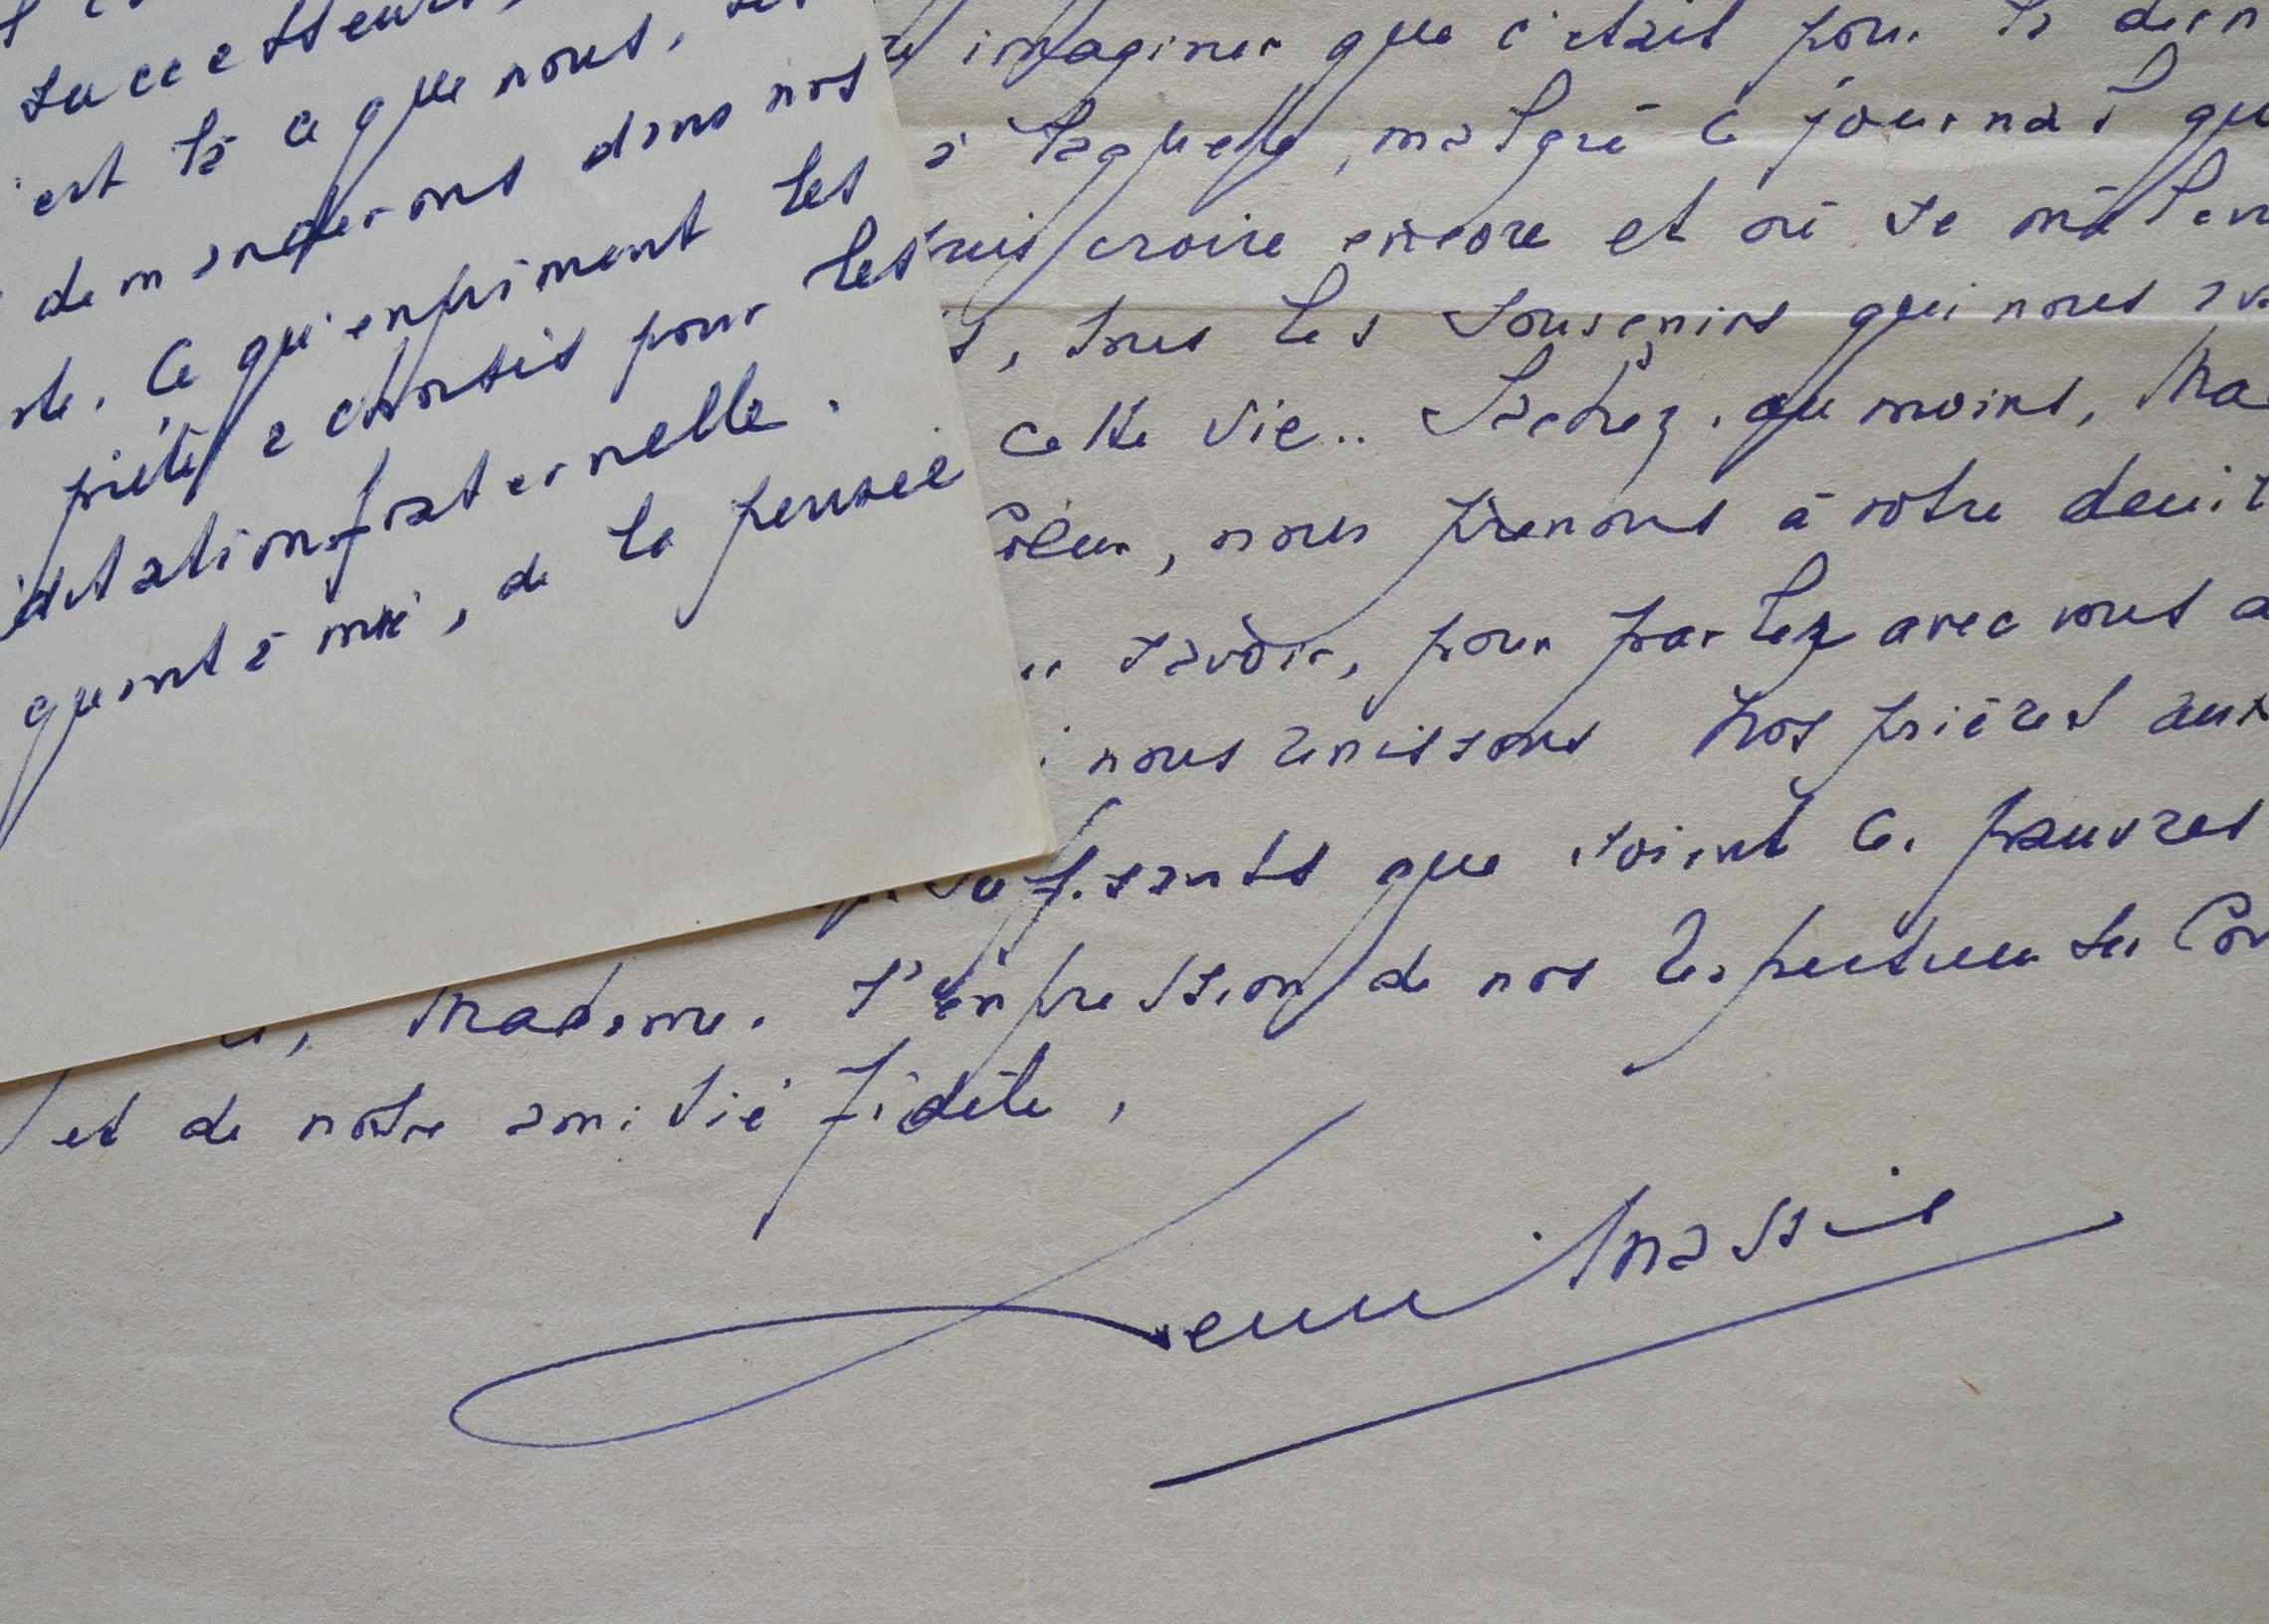 successeurs,
est là ce que nous,
demanderons dans nos
Ce qu'expriment les
piété a choisis pour les
fraternelle.
quant à moi, de la pensée
imaginer que c'était pour la dern
à laquelle, malgré ce journal qu
puis croire encore et où se mêlen
, tous les souvenirs qui nous
cette vie.. Sachez, au moins, Ma
cœur, nous prenons à votre deuil
savoir, pour parler avec vous
nous unissons nos prières aux
insuffisants que soient ces pauvres
Madame, l'expression de nos respectueuses Con
et de notre amitié fidèle,
Henri Massis